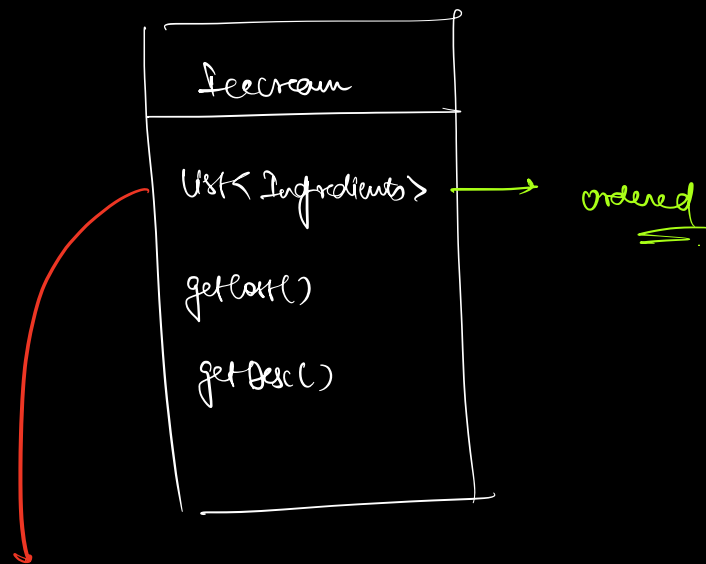 Icecream
List<Ingredients>
ordered
getCost()
getDesc()